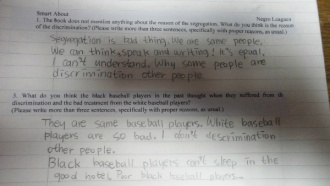 Smart About
Negro Leagues
1. The Book does not mention anything about the reason of the segregation. What do you think is the reason
of the discrimination? (Please write more than three sentences, specifically with proper reasons, as usual.)
Segregation is bad thing. We are same people.
We can think, speak and writing! It's equal.
I can't understand. Why some people are
discrimination other people.
3. What do you think the black baseball players in the past thought when they suffered from th
discrimination and the bad treatment from the white baseball players?
(Please write more than three sentences, specifically with proper reasons, as usual.)
They are same baseball players. White baseball
players are so bad. I don't descrimination
other people.
Black baseball players can't sleep in the
good hotel. Poor black baseball players...